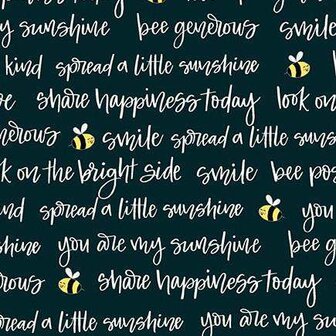 y sunshine bee generous smile
kind spread a little sunshine
e share happiness today look on
nerous smile spread a little suns
k on the bright side smile bee pos
nd spread a little sunshine you
hine you are my sunshine bee g
rous share happiness today
read a little sunshine you are my s